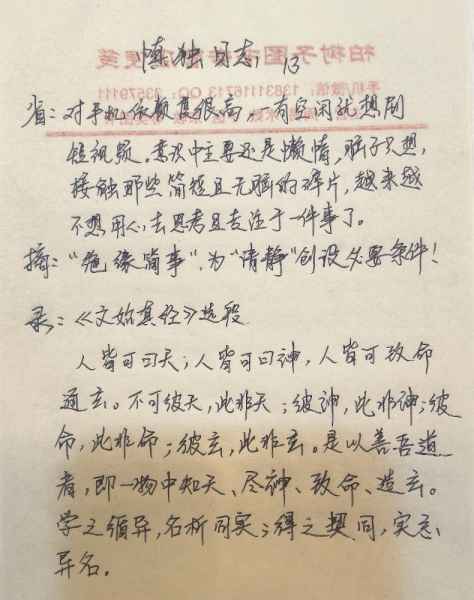 慎独日志, 13
省：对手机依赖度很高，一有空闲就想刷
短视频。意识中主要还是懒惰，脑子只想
接触那些简短且无脑的碎片，越来越
不想用心去思考且专注于一件事了。
摘：“绝缘简事”，为“清静”创设必要条件！
录：《文始真经》选段
人皆可曰天；人皆可曰神，人皆可致命
通玄。不可彼天，此非天；彼神，此非神；彼
命，此非命；彼玄，此非玄。是以善吾道
者，即一物中知天、尽神、致命、造玄。
学之徇异，名析同实；得之契同，实忘
异名。